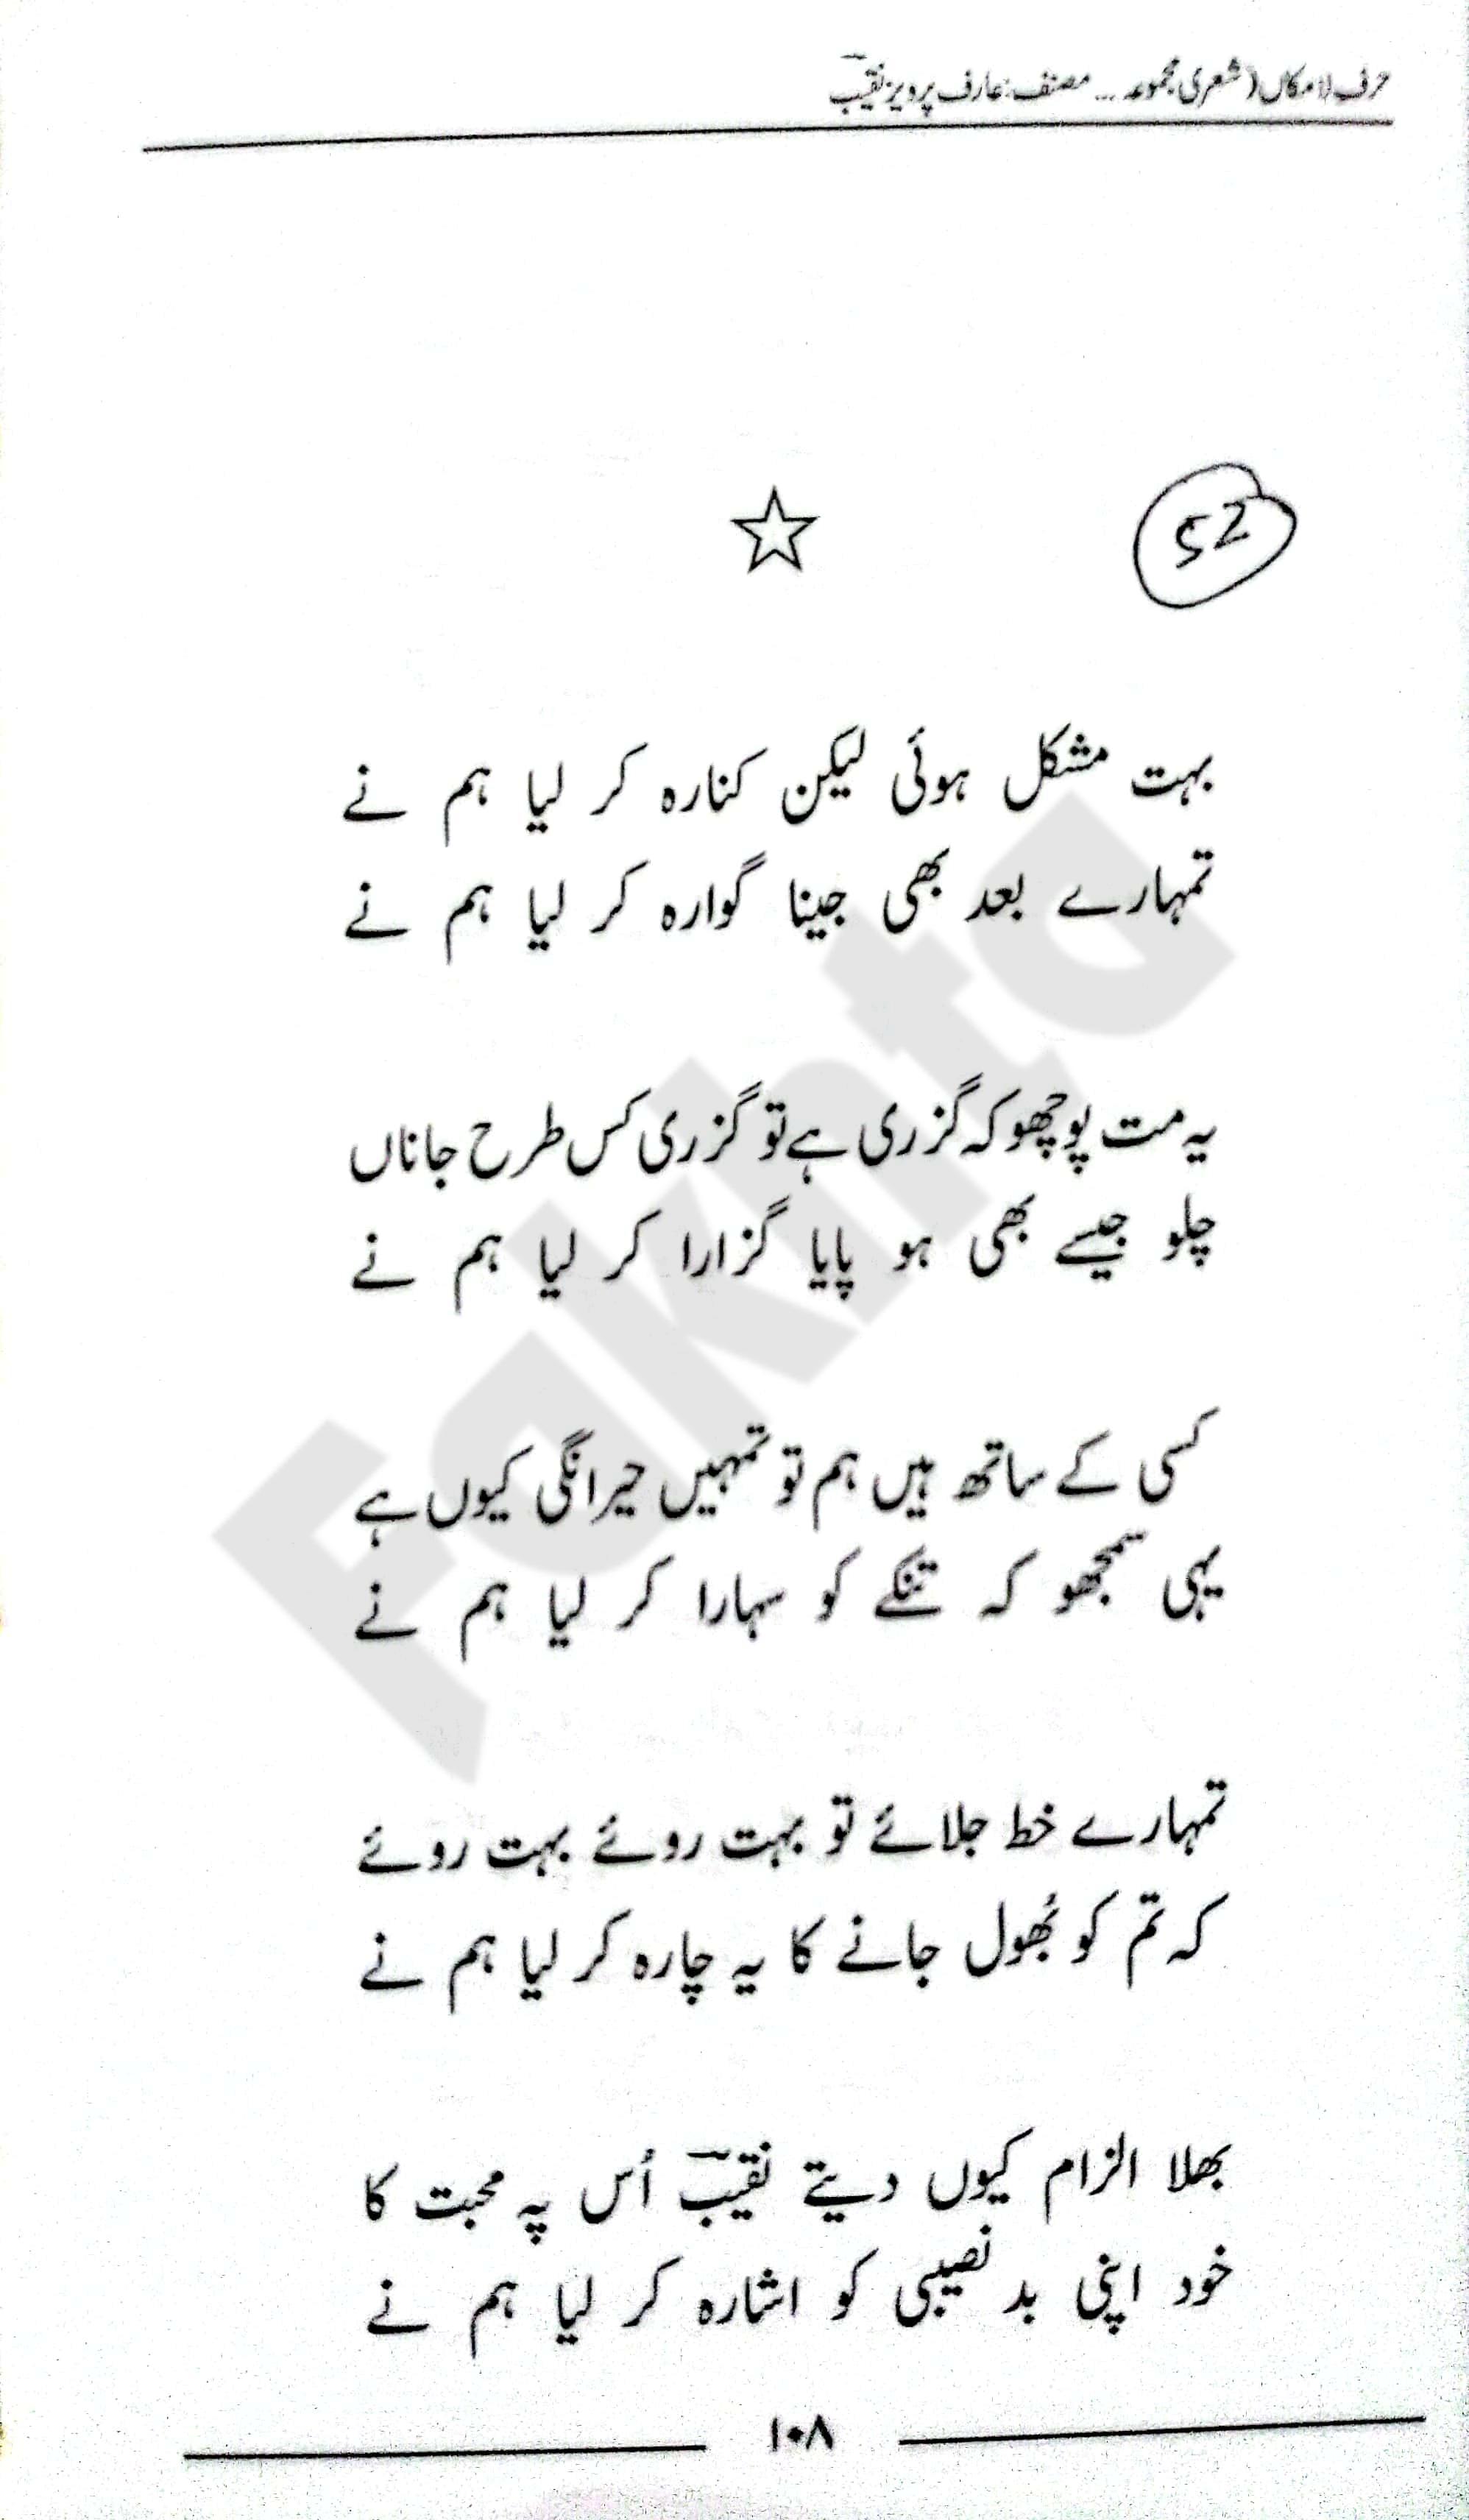 حرف لامکاں (شعری مجموعہ ... مصنف: عارف پرویز نقیبؔ
52
☆
بہت مشکل ہوئی لیکن کنارہ کر لیا ہم نے
تمہارے بعد بھی جینا گوارہ کر لیا ہم نے
یہ مت پوچھو کہ گزری ہے تو گزری کس طرح جاناں
چلو جیسے بھی ہو پایا گزارا کر لیا ہم نے
کسی کے ساتھ ہیں ہم تو تمہیں حیرانگی کیوں ہے
یہی سمجھو کہ تنکے کو سہارا کر لیا ہم نے
تمہارے خط جلائے تو بہت روئے بہت روئے
کہ تم کو بُھول جانے کا یہ چارہ کر لیا ہم نے
بھلا الزام کیوں دیتے نقیبؔ اُس پہ محبت کا
خود اپنی بد نصیبی کو اشارہ کر لیا ہم نے
۱۰۸
Fakhta